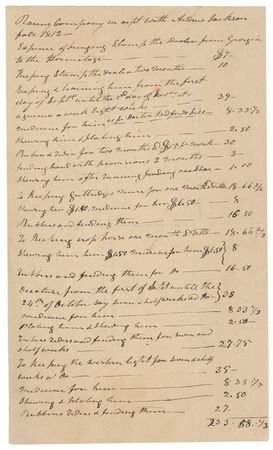 Racing Company in acpt with Andrew Jackson
fall 1812—
Expence of bringing Stump the Dealer from Georgia
to the Hermitage — $7.
Keeping Stump the dealer two months — 10
Keeping & training him from the first
day of Septr. until the day of
a guinea a week Eight weeks — 39—
medicine for him as pr Doctor Bedfords bill — 8.33 1/3
Shoeing him & plating him — 2.50
Rubers & rider for two months — 30
finding hand with provisions 2 months — 3—
Shoeing him after running — 1.00
To Keeping Guttridges mare for one month & ditto 18.66 2/3
Shoeing her $1.50, medicine for her $6.50— 8
Rubbers and feeding them — 16.50
To Keeping crop horse one month & ditto— 18.66 2/3
Shoeing him $1.50 medicine for him $6.50 8
rubbers and feeding them for do — 16.50
Decatur from the first of Sept until the
24th of October say seven & half weeks 38
medicine for him — 8.33 1/3
Plating him & Shoeing him — 2.50—
rubers riders & feeding them for seven and
half weeks — 27.75
To Keeping the western light for seven & half
weeks a do — 35—
medicine for him — 8.33 1/3
Shoeing & plating him — 2.50
Rubbers riders & feeding them — 27.